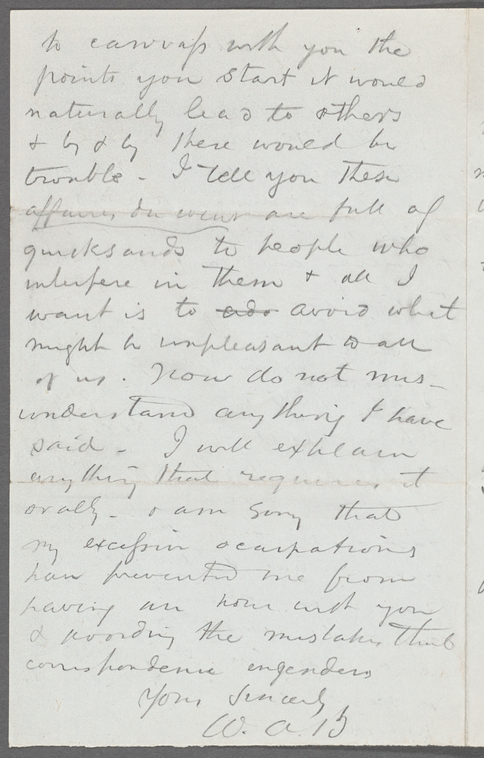 to canvass with you the
points you start it would
naturally lead to others
& by & by there would be
trouble - I tell you these
affaires du cœur are full of
quicksands to people who
interfere in them & all I
want is to avoid what
might be unpleasant to all
of us. Now do not mis-
understand anything I have
said - I will explain
anything that requires it
orally - & am sorry that
my excessive occupations
have prevented me from
having an hour with you
& avoiding the mistakes that
correspondence engenders
Yours Sincerely
W. A. B